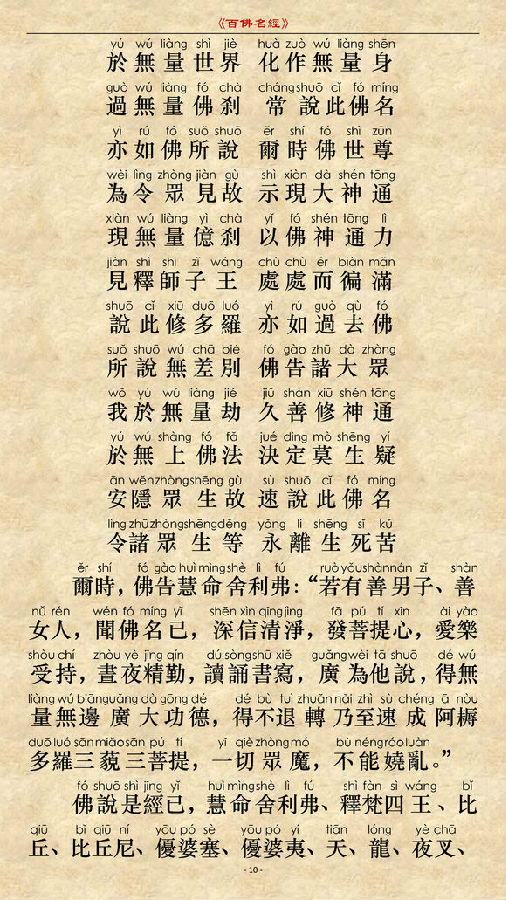 《百佛名經》
yú wú liàng shì jiè huà zuò wú liàng shēn
於無量世界 化作無量身
guò wú liàng fó chà cháng shuō cǐ fó míng
過無量佛剎 常說此佛名
yì rú fó suǒ shuō ěr shí fó shì zūn
亦如佛所說 爾時佛世尊
wèi lìng zhòng jiàn gù shì xiàn dà shén tōng
為令眾見故 示現大神通
xiàn wú liàng yì chà yǐ fó shén tōng lì
現無量億剎 以佛神通力
jiàn shì shī zǐ wáng chù chù ér biàn mǎn
見釋師子王 處處而徧滿
shuō cǐ xiū duō luó yì rú guò qù fó
說此修多羅 亦如過去佛
suǒ shuō wú chā bié fó gào zhū dà zhòng
所說無差別 佛告諸大眾
wǒ yú wú liàng jié jiǔ shàn xiū shén tōng
我於無量劫 久善修神通
yú wú shàng fó fǎ jué dìng mò shēng yí
於無上佛法 決定莫生疑
ān wěn zhòng shēng gù sù shuō cǐ fó míng
安隱眾生故 速說此佛名
lìng zhū zhòng shēng děng yǒng lí shēng sǐ kǔ
令諸眾生等 永離生死苦
ěr shí fó gào huì mìng shè lì fú ruò yǒu shàn nán zǐ shàn
爾時，佛告慧命舍利弗：“若有善男子、善
nǚ rén wén fó míng yǐ shēn xìn qīng jìng fā pú tí xīn ài yào
女人，聞佛名已，深信清淨，發菩提心，愛樂
shòu chí zhòu yè jīng qín dú sòng shū xiě guǎng wèi tā shuō dé wú
受持，晝夜精勤，讀誦書寫，廣為他說，得無
liàng wú biān guǎng dà gōng dé dé bù tuì zhuǎn nǎi zhì sù chéng ā nòu
量無邊廣大功德，得不退轉乃至速成阿耨
duō luó sān miǎo sān pú tí yī qiè zhòng mó bù néng ráo luàn
多羅三藐三菩提，一切眾魔，不能嬈亂。”
fó shuō shì jīng yǐ huì mìng shè lì fú shì fàn sì wáng bǐ
佛說是經已，慧命舍利弗、釋梵四王、比
qiū bǐ qiū ní yōu pó sè yōu pó yí tiān lóng yè chā
丘、比丘尼、優婆塞、優婆夷、天、龍、夜叉、
- 10 -